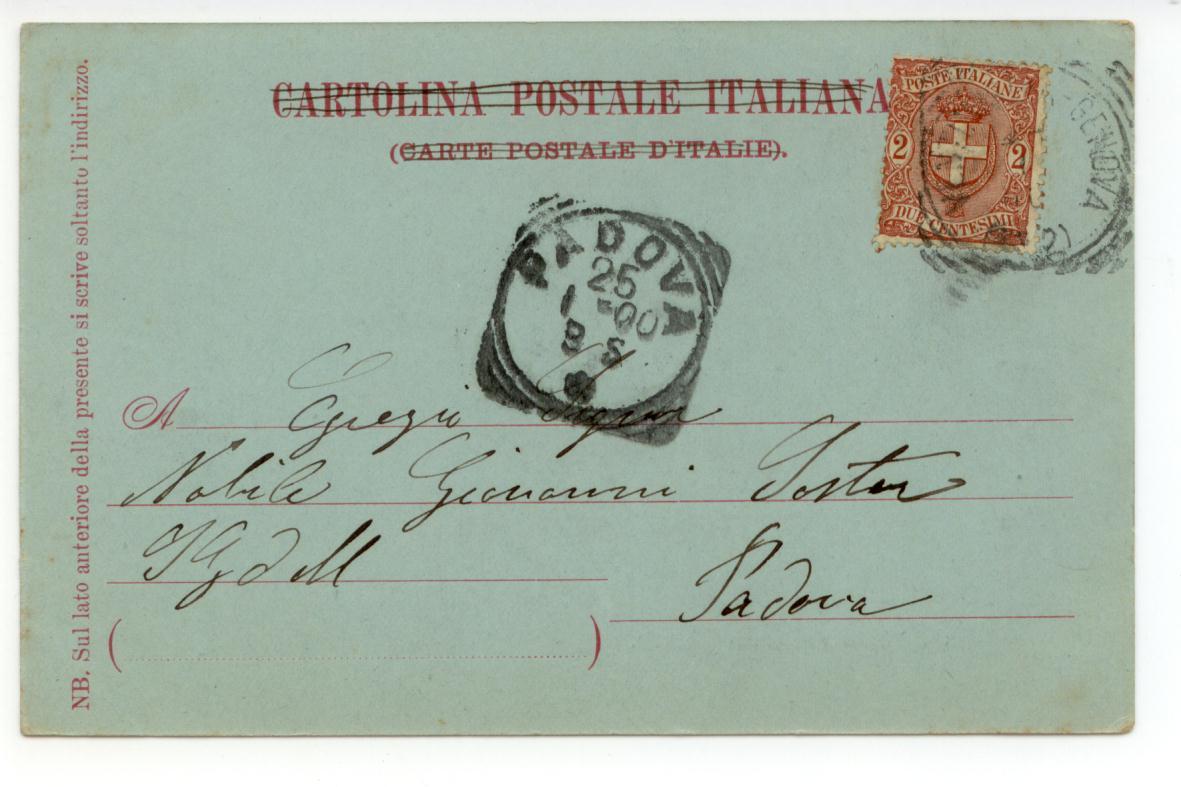 CARTOLINA POSTALE ITALIANA
(CARTE POSTALE D'ITALIE).
POSTE ITALIANE
2 2
DUE CENTESIMI
GENOVA
PADOVA
25
1 -00
8 S
NB. Sul lato anteriore della presente si scrive soltanto l'indirizzo.
A Egregio Signor
Nobile Giovanni
Padova